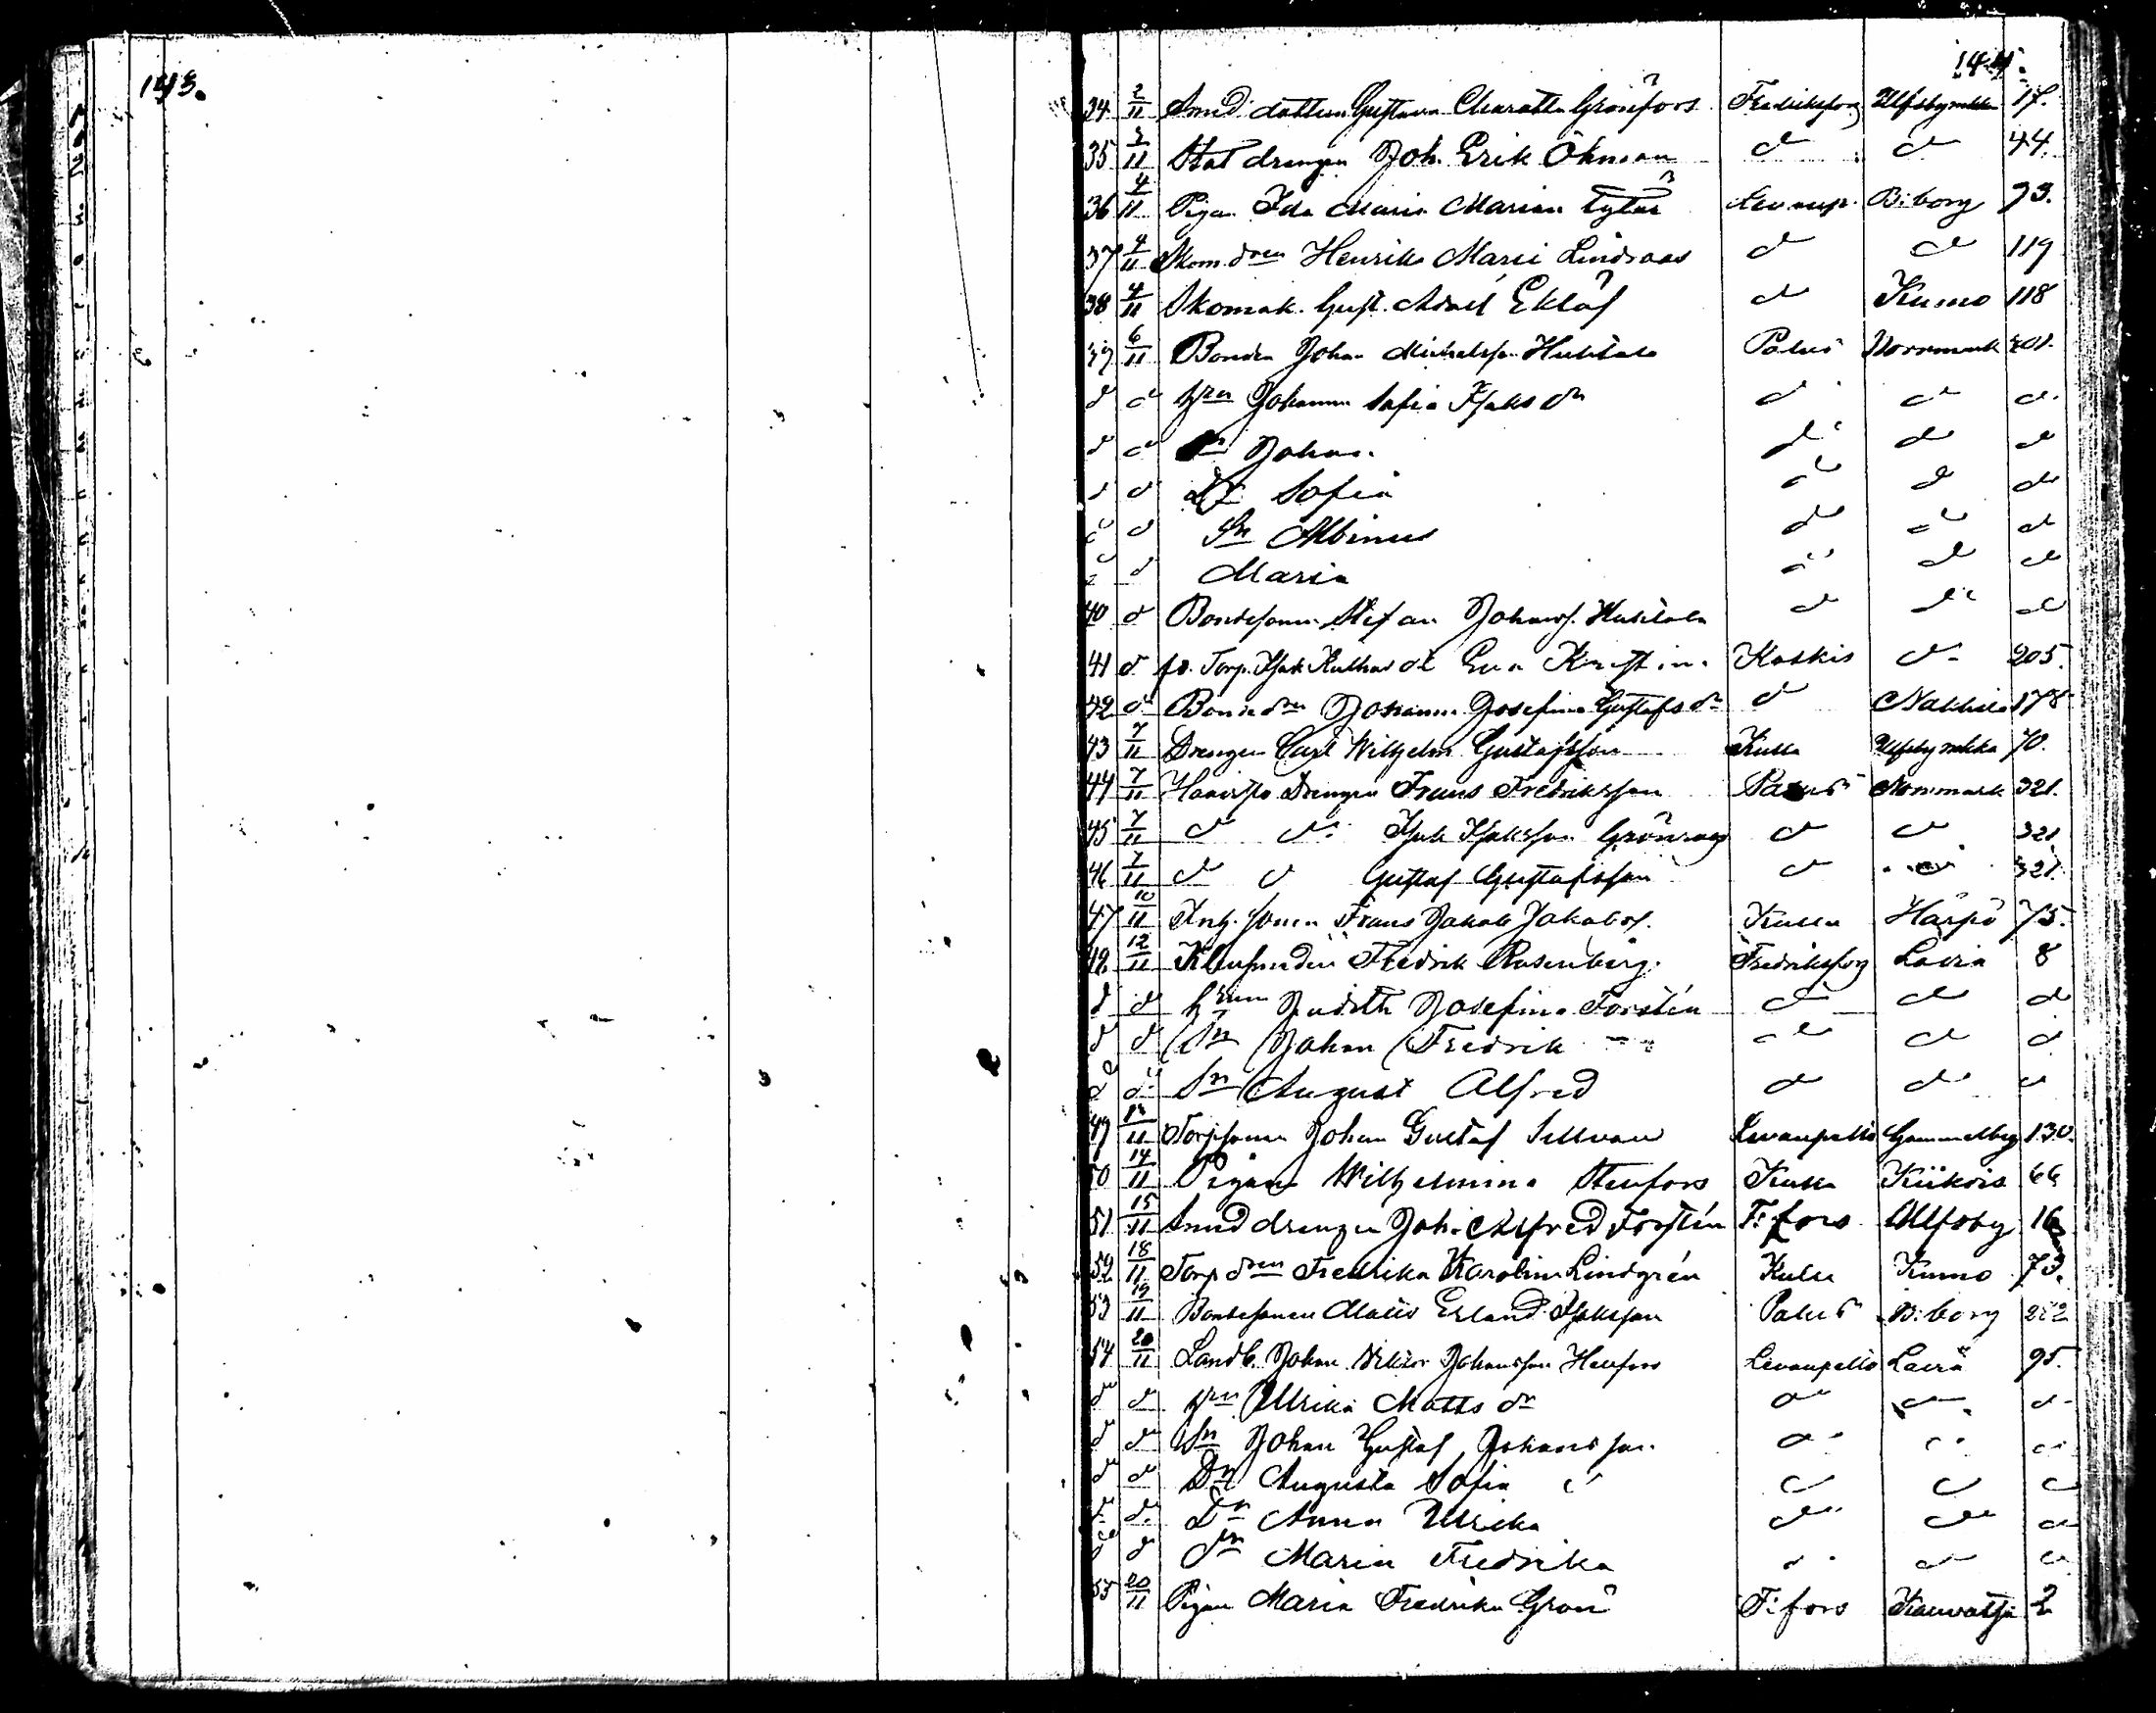 143.
144.
34 2/11 Smed dottren Gustava Charatta Grönfors Fredriksfors Ulfsby mlk 17.
35 3/11 Stat drengen Joh. Erik Öhman d d 44.
36 4/11 Pigan Ida Maria Levanp. B:borg 93.
37 4/11 Skom. dren Henrika Maria Lindroos d d 119
38 4/11 Skomak. Gust. Adolf Eklöf d Kumo 118
39 6/11 Bonden Johan Michelsson Huhtala Palus Norrmark 201.
d d hrn Johanna Sofia Isaks dr d d d
d d Sn Johan d d d
d d Dr Sofia d d d
d d Sn Albinus d d d
d d Maria d d d
40 d Bondesonen Stefan Johanss. Huhtala d d d
41 d fd. Torp. Isak dr Eva Kristina Kaskis d 205.
42 d Bonde dren Johanna Josefina Gustafs dr d Nakkila 178
43 7/11 Drengen Carl Wilhelm Gustafsson Kulla Ulfsby mlk 70.
44 7/11 Drengen Frans Fredriksson Palus Norrmark 321.
45 7/11 d d Isak Isaksson Grönroos d d 321
46 7/11 d d Gustaf Gustafsson d d 321.
47 10/11 Inh. sonen Frans Jakob Jakobss. Kulla Harjo 75.
48. 12/11 Fredrik Rosenberg. Fredriksfors Lavia 8
d d hrun Judith Josefina Forstén d d d
d d Sn Johan Fredrik d d d
d d Sn August Alfred d d d
49 /11 Torpsonen Johan Gustaf Sillman Levanpelto Gammelby 130.
50 14/11 Pigan Wilhelmina Stenfors Kulla Kiikois 66
51 15/11 Smed drengen Joh. Alfred Forstén F:fors Ulfsby 16
52 18/11 Torp dren Fredrika Karolina Lindgrén Kulla Kumo 73.
53 19/11 Bondesonen Matts Erland Isaksson Palus B:borg 252
54 20/11 Landb. Johan Viktor Johansson Henfors Levanpelto Lavia 95.
d d hrn Ulrika Matts dr d d d
d d Sn Johan Gustaf Johansson d d d
d d Dr Augusta Sofia d d d d
d d. Dr Anna Ulrika d d d
d d Dr Maria Fredrika d d d
55 20/11 Pigan Maria Fredrika Grön F:fors Kauvatsa 2